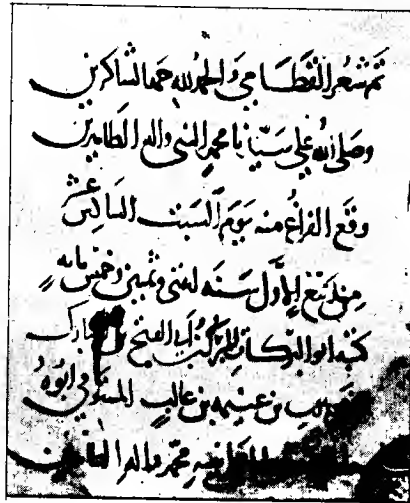 تم شعر القطامي والحمد لله حمد الشاكرين
وصلى الله على سيدنا محمد النبي واله الطاهرين
وقع الفراغ منه يوم السبت الثالث عشر
من ربيع الاول سنه اثنى وثمنين وخمس مايه
كتبه ابو البركات المبارك بن ابي الفتح بن المبارك
بن موهوب بن غنيمه بن غالب المستوفي ابوه
محمد واله الطاهرين